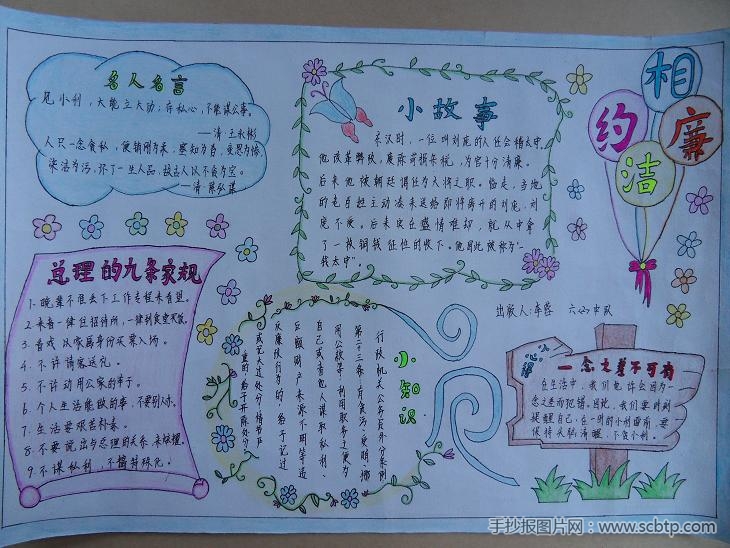 名人名言
见小利，不能立大功；存私心，不能谋公事。
——清·王永彬
人只一念贪私，便销刚为柔，塞知为昏，变恩为惨
染洁为污，坏了一生人品，故古人以不贪为宝。
小故事
东汉时，一位叫刘宠的人任会稽太守，
他改革弊政，废除苛捐杂税，为官十分清廉。
后来他被朝廷调任为大将之职。临走，当地
的老百姓主动凑来送给即将离开的刘宠，刘
宠不受。后来实在盛情难却，就从中拿
了一枚铜钱征收的收下。他因此被称为“一
钱太守”。
相约廉洁
出版人：李蓉 六(2)中队
总理的九条家规
1.晚辈不准丢下工作专程来看望。
2.来者一律住招待所，一律到食堂买饭。
3.看戏以家属身份买票入场。
4.不许请客送礼。
5.不许动用公家的车子。
6.个人生活能做的事，不要别人办。
7.生活要艰苦朴素。
8.不要说出与总理的关系，来炫耀。
9.不谋私利，不搞特殊化。
小知识
行政机关公务员处分条例
第二十三条：有贪污、受贿、挪
用公款等，利用职务之便为
自己或者他人谋取私利、
巨额财产来源不明等违
反廉政行为的，给予记过
或记大过处分，情节严
重的，给予开除处分。
小心得
一念之差不可有
在生活中，我们也许会因为一
念之差而犯错。因此，我们要时刻
提醒自己，在一时的小利面前，要
保持头脑清醒，不贪小利。
手抄报图片网：www.scbtp.com